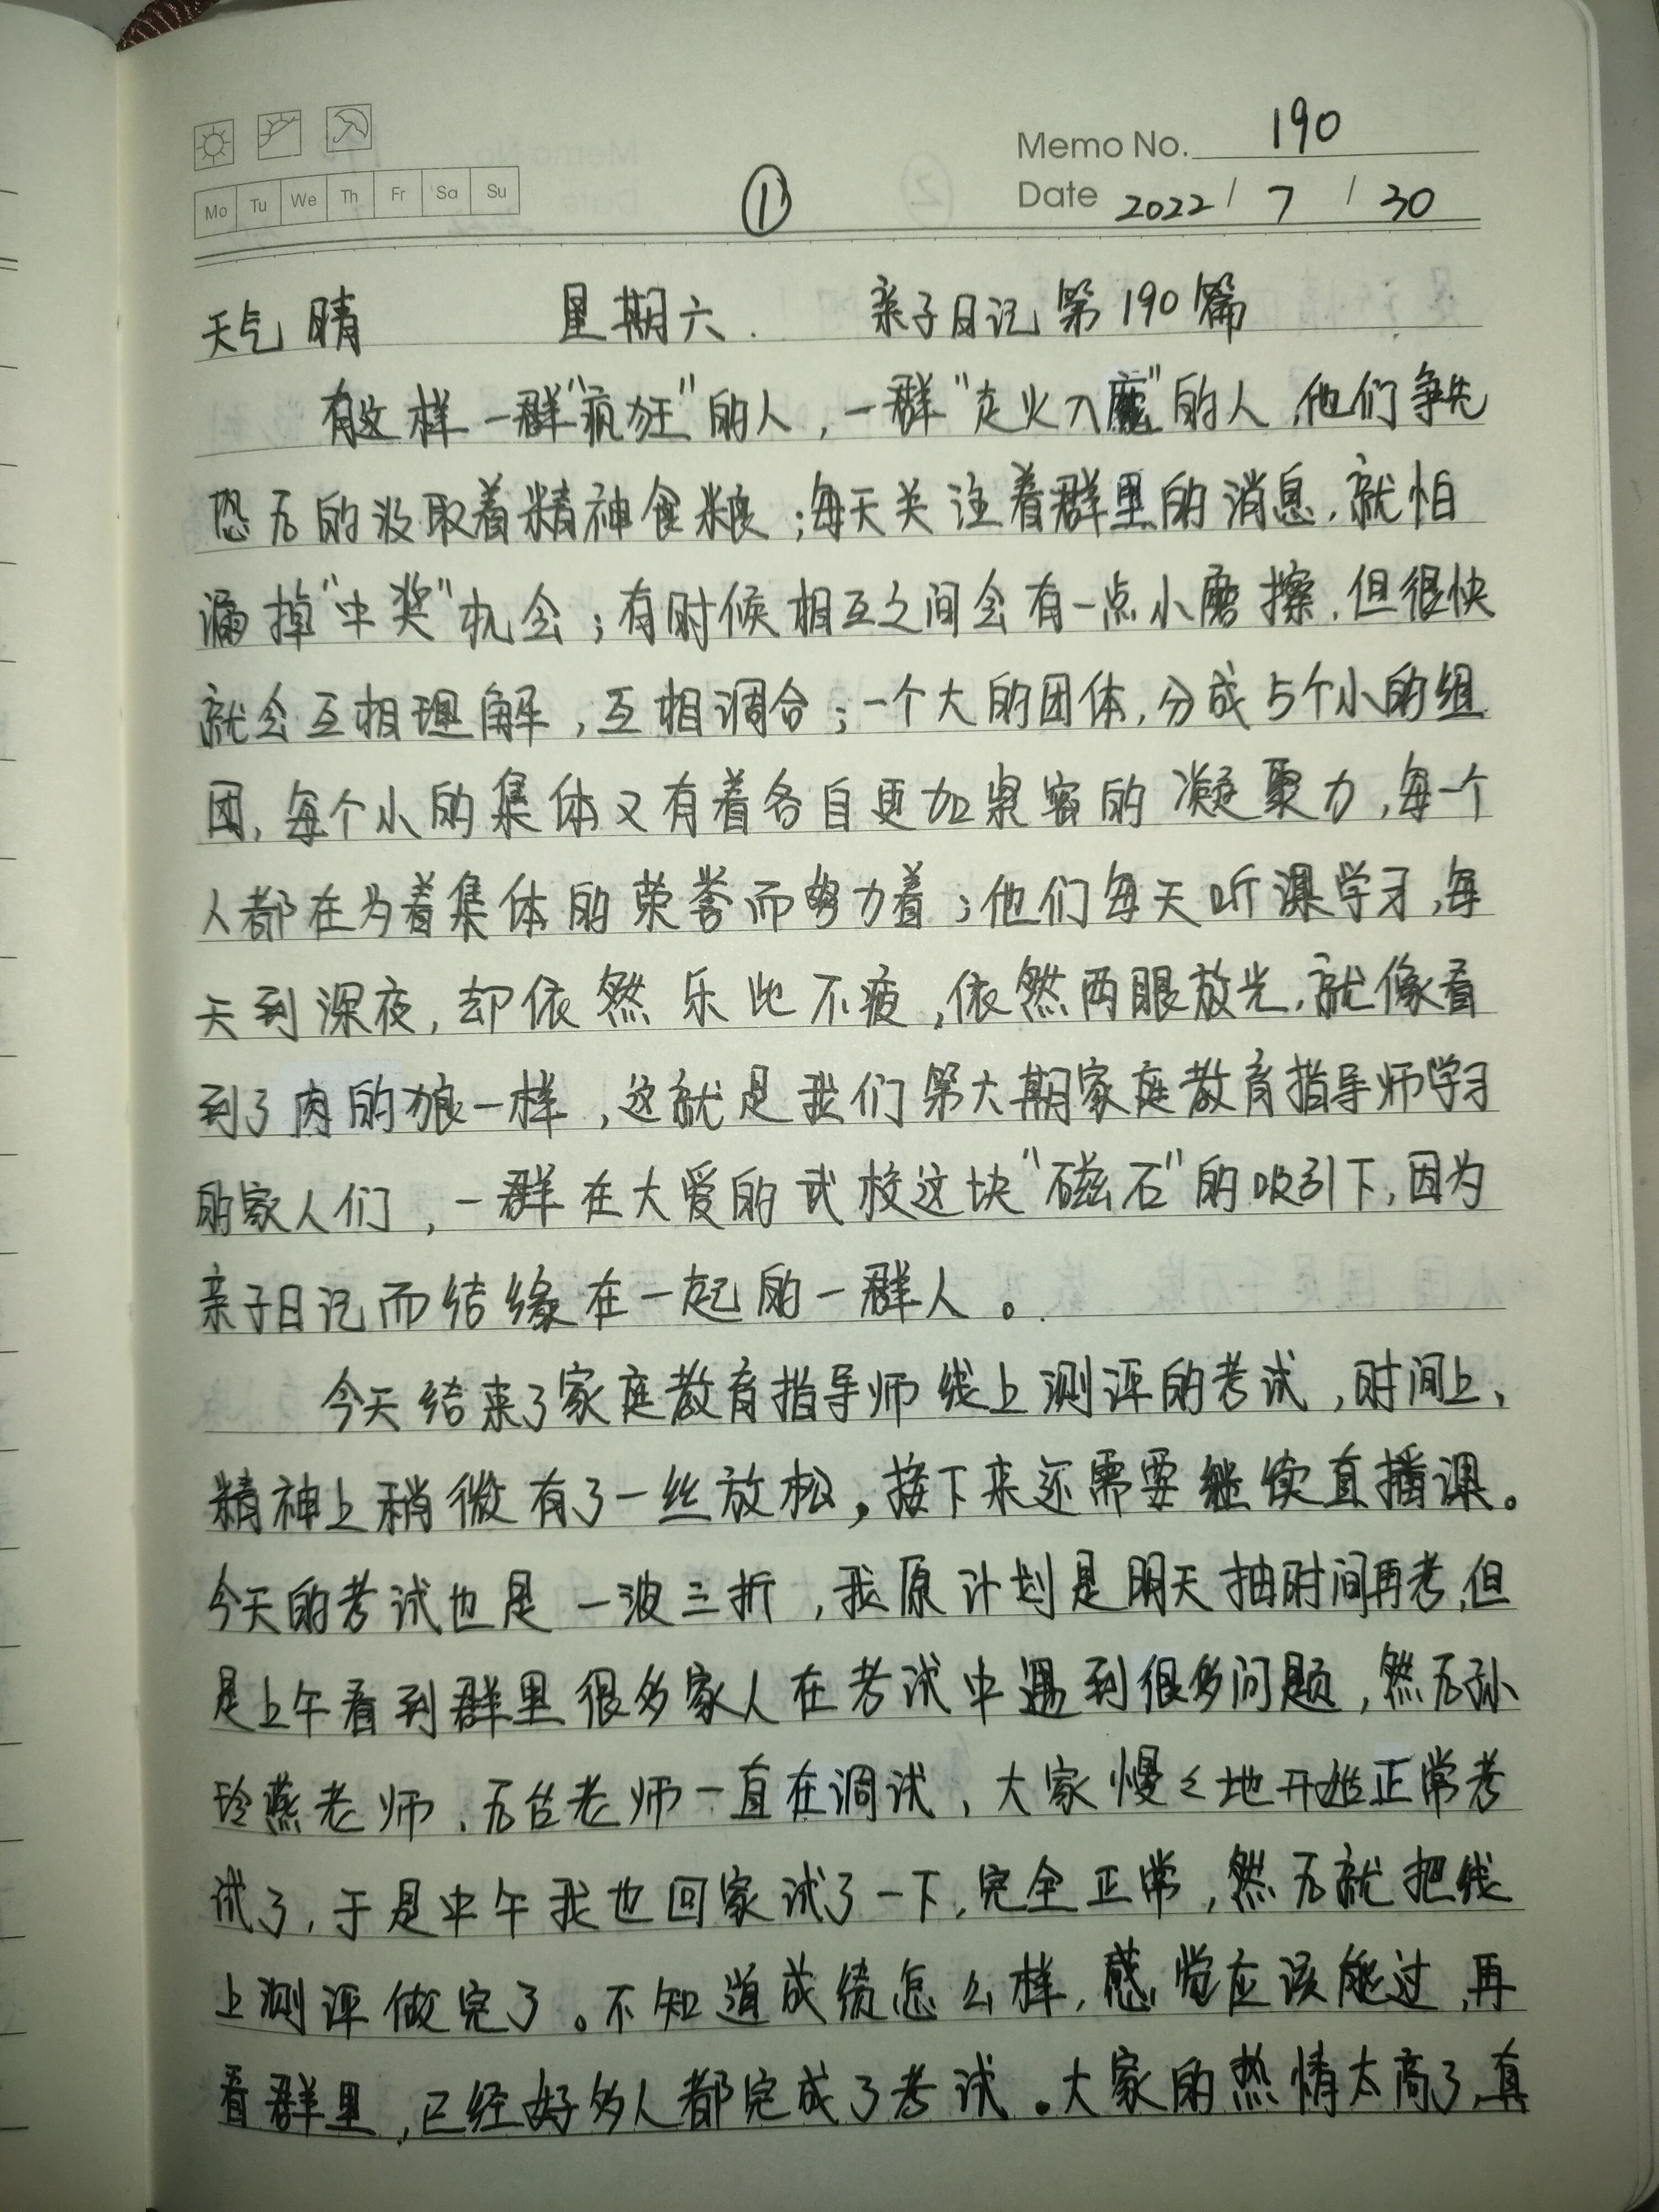 Memo No. 190
Mo Tu We Th Fr Sa Su
①
Date 2022 / 7 / 30
天气 晴 星期六. 亲子日记第190篇
有这样一群"疯狂"的人,一群"走火入魔"的人,他们争先
恐后的汲取着精神食粮;每天关注着群里的消息,就怕
漏掉"中奖"机会;有时候相互之间会有一点小磨擦,但很快
就会互相理解,互相调合;一个大的团体,分成5个小的组
团,每个小的集体又有着各自更加紧密的凝聚力,每一个
人都在为着集体的荣誉而努力着;他们每天听课学习,每
天到深夜,却依然乐此不疲,依然两眼放光,就像看
到了肉的狼一样,这就是我们第六期家庭教育指导师学习
的家人们,一群在大爱的武校这块"磁石"的吸引下,因为
亲子日记而结缘在一起的一群人。
今天结束了家庭教育指导师线上测评的考试,时间上、
精神上稍微有了一丝放松,接下来还需要继续直播课。
今天的考试也是一波三折,我原计划是明天抽时间再考,但
是上午看到群里很多家人在考试中遇到很多问题,然后孙
玲燕老师、后台老师一直在调试,大家慢々地开始正常考
试了,于是中午我也回家试了一下,完全正常,然后就把线
上测评做完了。不知道成绩怎么样,感觉应该能过,再
看群里,已经好多人都完成了考试。大家的热情太高了,真